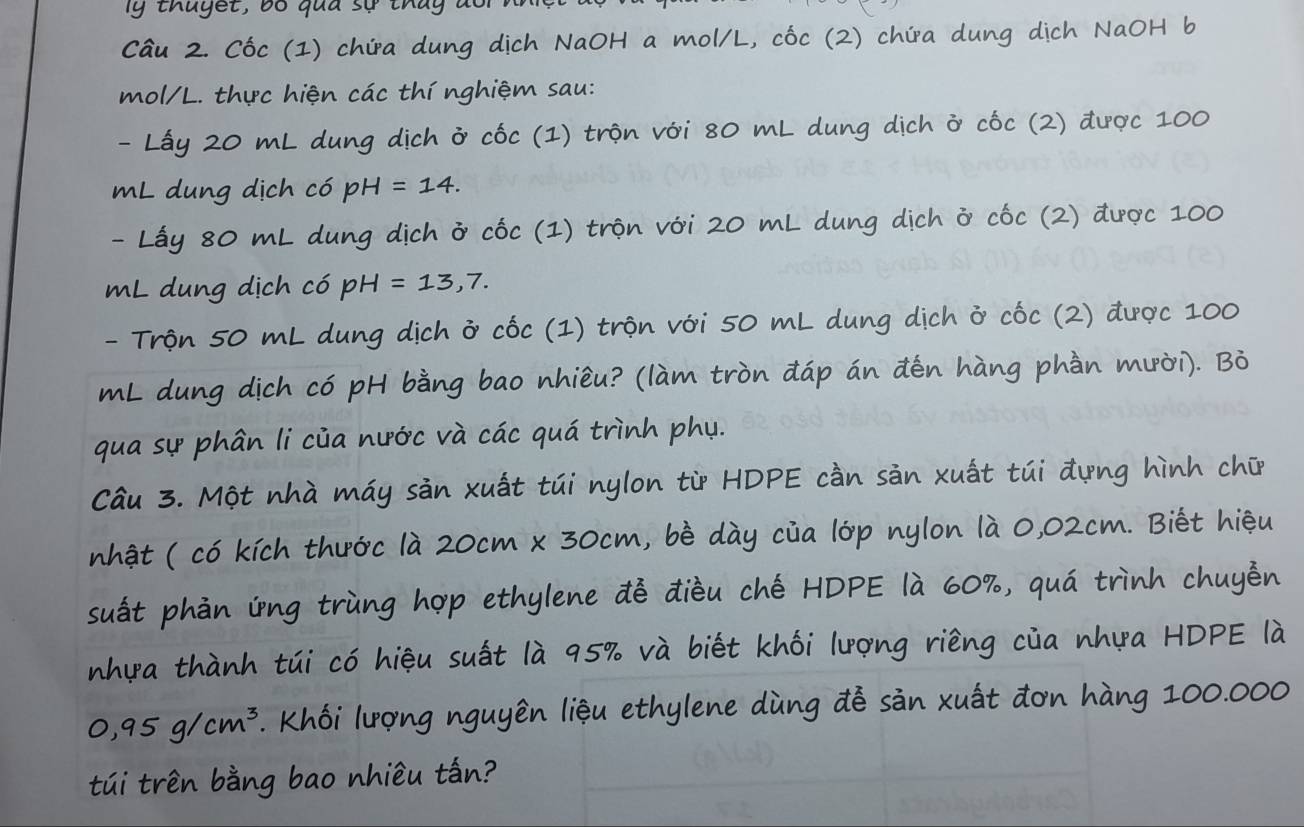 lý thuyết, bỏ qua sự thay
Câu 2. Cốc (1) chứa dung dịch NaOH a mol/L, cốc (2) chứa dung dịch NaOH b
mol/L. thực hiện các thí nghiệm sau:
- Lấy 20 mL dung dịch ở cốc (1) trộn với 80 mL dung dịch ở cốc (2) được 100
mL dung dịch có pH = 14.
- Lấy 80 mL dung dịch ở cốc (1) trộn với 20 mL dung dịch ở cốc (2) được 100
mL dung dịch có pH = 13,7.
- Trộn 50 mL dung dịch ở cốc (1) trộn với 50 mL dung dịch ở cốc (2) được 100
mL dung dịch có pH bằng bao nhiêu? (làm tròn đáp án đến hàng phần mười). Bỏ
qua sự phân li của nước và các quá trình phụ.
Câu 3. Một nhà máy sản xuất túi nylon từ HDPE cần sản xuất túi đựng hình chữ
nhật ( có kích thước là 20cm x 30cm, bề dày của lớp nylon là 0,02cm. Biết hiệu
suất phản ứng trùng hợp ethylene để điều chế HDPE là 60%, quá trình chuyển
nhựa thành túi có hiệu suất là 95% và biết khối lượng riêng của nhựa HDPE là
0,95 g/cm³. Khối lượng nguyên liệu ethylene dùng để sản xuất đơn hàng 100.000
túi trên bằng bao nhiêu tấn?